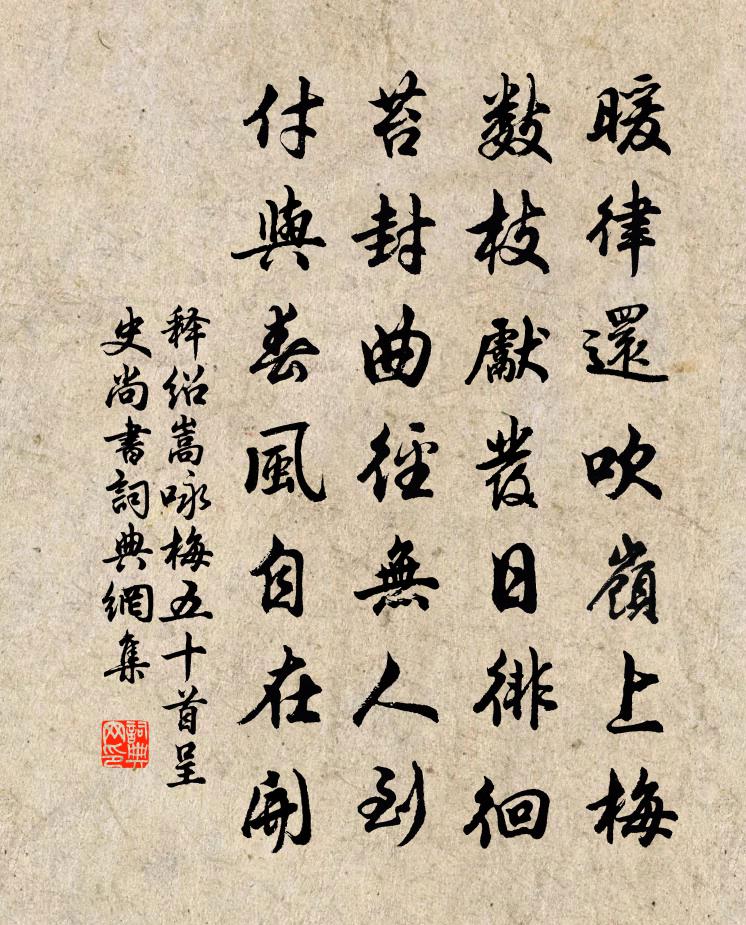 暖律還吹嶺上梅
數枝獻發日徘徊
苔封曲徑無人到
付與春風自在開
釋紹嵩咏梅五十首呈
史尚書詞典網集
詞典
网印